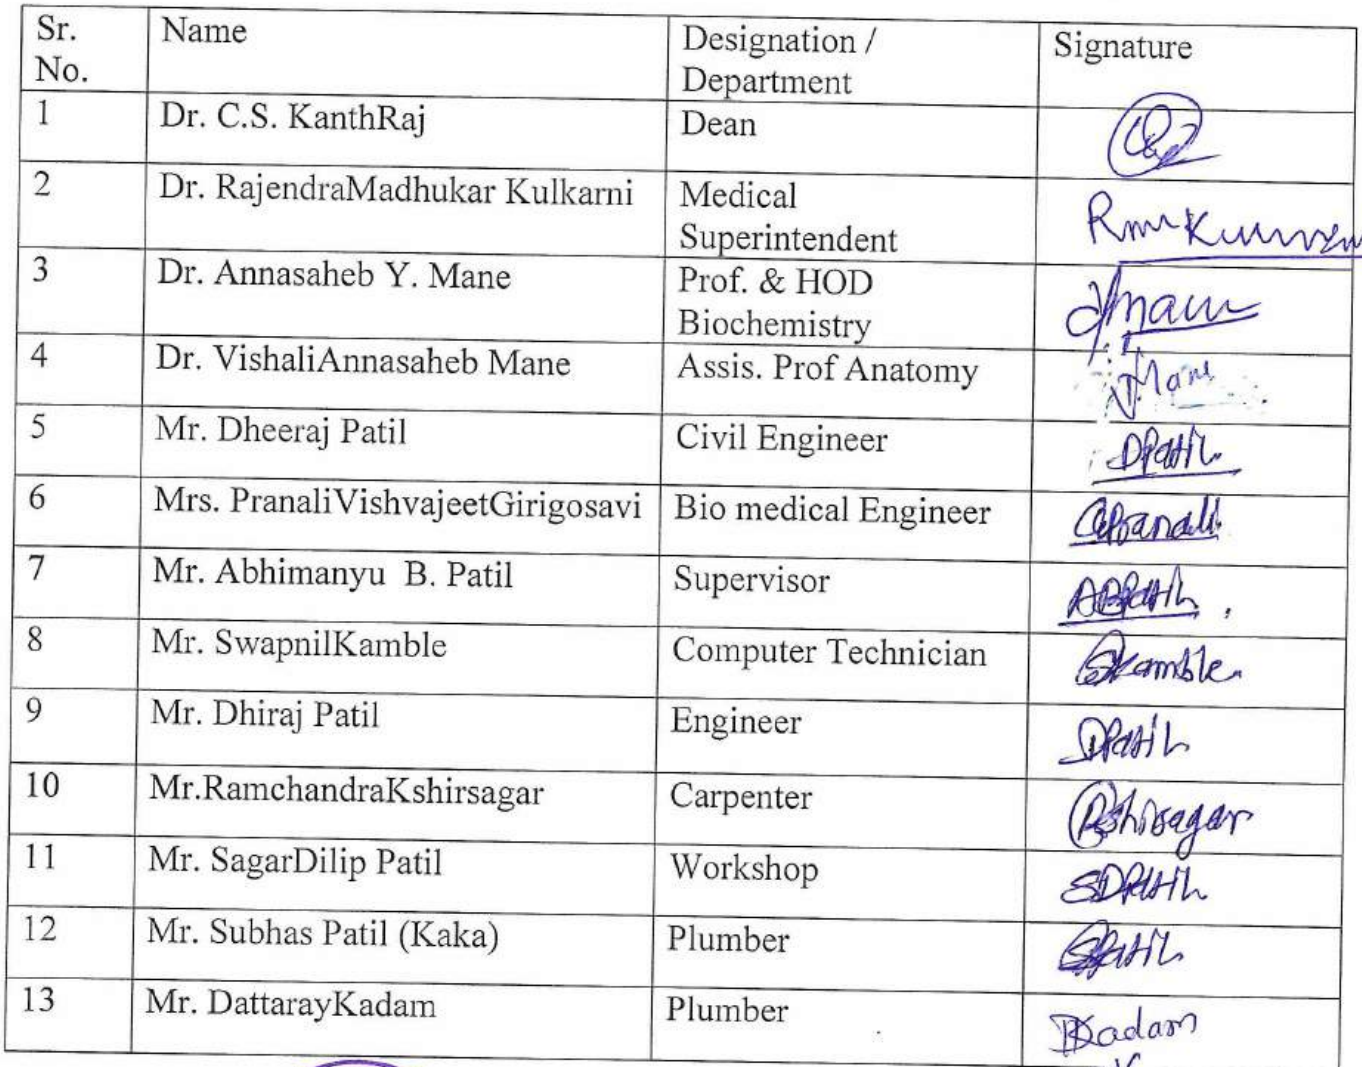 Sr. No. Name Designation / Department Signature
1 Dr. C.S. KanthRaj Dean
2 Dr. RajendraMadhukar Kulkarni Medical Superintendent
3 Dr. Annasaheb Y. Mane Prof. & HOD Biochemistry
4 Dr. VishaliAnnasaheb Mane Assis. Prof Anatomy
5 Mr. Dheeraj Patil Civil Engineer DPatil
6 Mrs. PranaliVishvajeetGirigosavi Bio medical Engineer
7 Mr. Abhimanyu B. Patil Supervisor ABPatil
8 Mr. SwapnilKamble Computer Technician SKamble
9 Mr. Dhiraj Patil Engineer DPatil
10 Mr.RamchandraKshirsagar Carpenter
11 Mr. SagarDilip Patil Workshop SDPatil
12 Mr. Subhas Patil (Kaka) Plumber SPatil
13 Mr. DattarayKadam Plumber DKadam